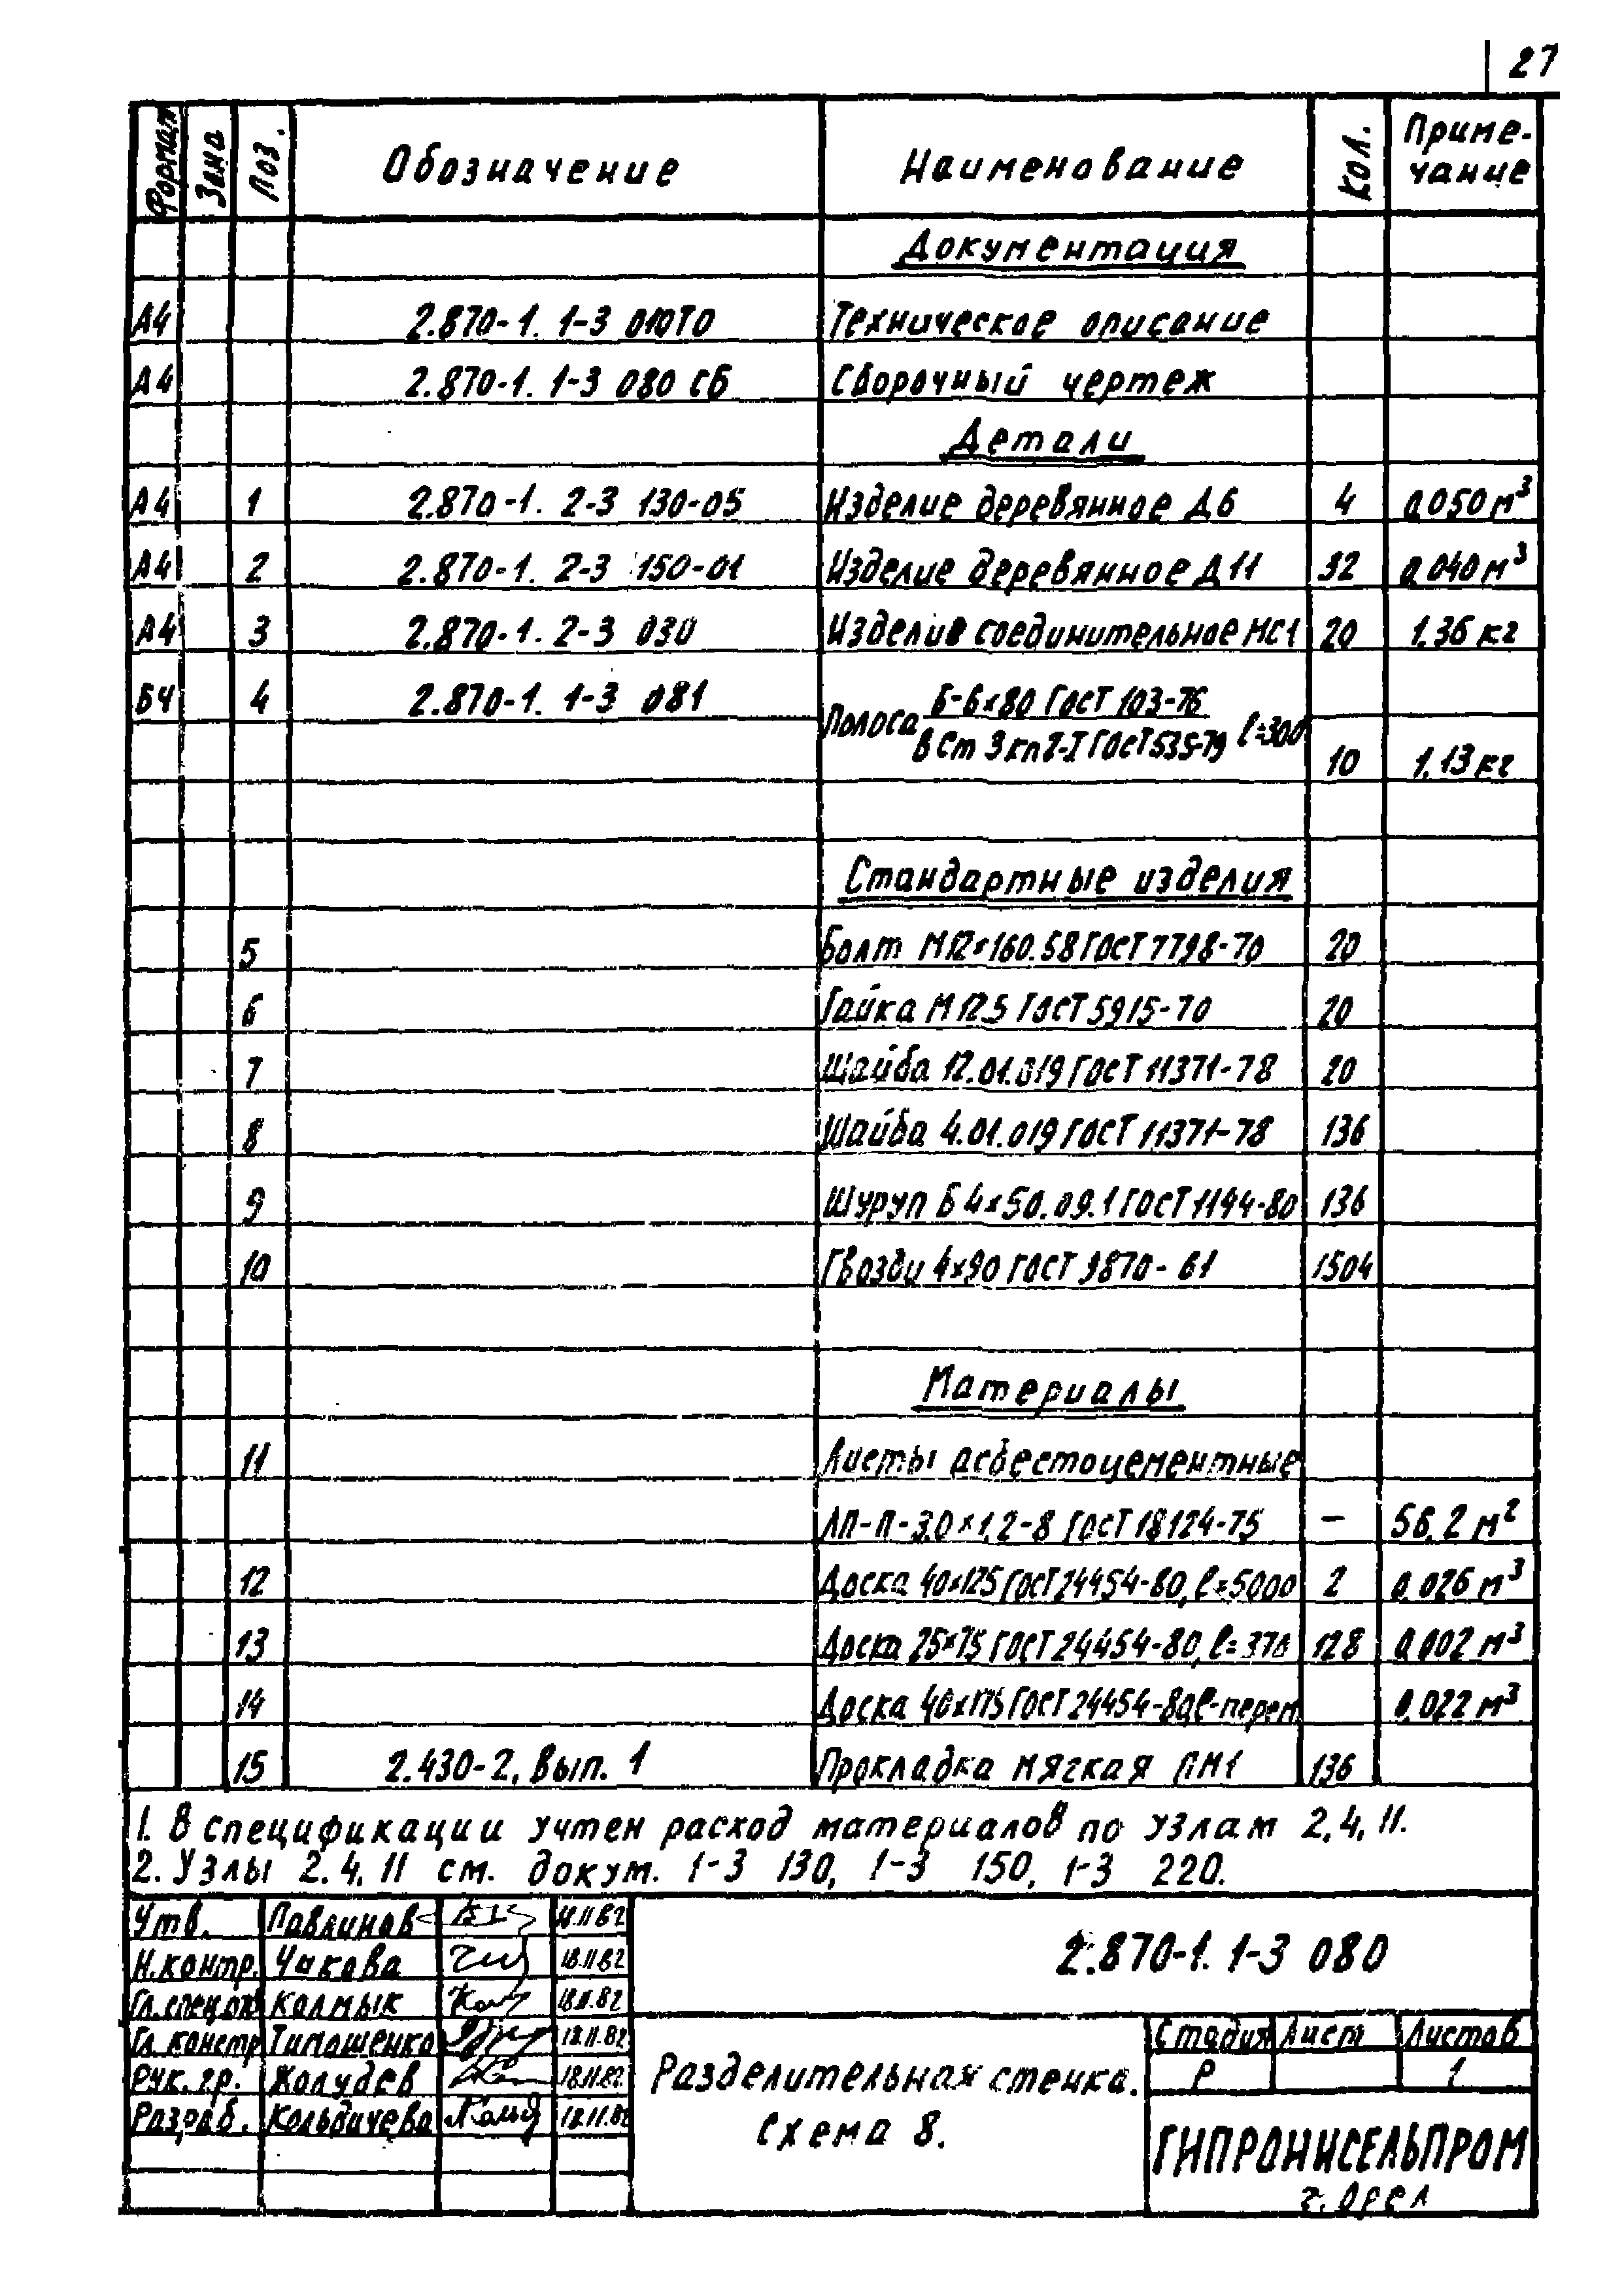 27
Формат Зона Поз. Обозначение Наименование Кол. Приме-
чание
Документация
А4 2.870-1. 1-3 010ТО Техническое описание
А4 2.870-1. 1-3 080 СБ Сборочный чертеж
Детали
А4 1 2.870-1. 2-3 130-05 Изделие деревянное Д6 4 0,050 м³
А4 2 2.870-1. 2-3 150-01 Изделие деревянное Д11 32 0,040 м³
А4 3 2.870-1. 2-3 030 Изделие соединительное МС1 20 1.36 кг
БЧ 4 2.870-1. 1-3 081 Полоса Б-6×80 ГОСТ 103-76
В Ст 3 кп 2-I ГОСТ 535-79 ℓ=300 10 1.13 кг
Стандартные изделия
5 Болт М12×160.58 ГОСТ 7798-70 20
6 Гайка М12.5 ГОСТ 5915-70 20
7 Шайба 12.01.019 ГОСТ 11371-78 20
8 Шайба 4.01.019 ГОСТ 11371-78 136
9 Шуруп Б 4×50.09.1 ГОСТ 1144-80 136
10 Гвозди 4×90 ГОСТ 9870-61 1504
Материалы
11 Листы асбестоцементные
ЛП-П-3,0×1,2-8 ГОСТ 18124-75 — 56,2 м²
12 Доска 40×125 ГОСТ 24454-80, ℓ=5000 2 0,026 м³
13 Доска 25×75 ГОСТ 24454-80, ℓ=370 128 0,002 м³
14 Доска 40×175 ГОСТ 24454-80, ℓ-перем. 0,022 м³
15 2.430-2, Вып. 1 Прокладка мягкая ПМ1 136
1. В спецификации учтен расход материалов по узлам 2, 4, 11.
2. Узлы 2.4.11 см. докум. 1-3 130, 1-3 150, 1-3 220.
Утв. Павлинов 18.11.82
Н.контр. Чакова 18.11.82
Гл.спец.от Калмык 18.11.82
Гл. констр Тимашенко 18.11.82
Рук. гр. Жолудев 18.11.82
Разраб. Кольдичева 18.11.82
2.870-1. 1-3 080
Разделительная стенка.
Схема 8.
Стадия Лист Листов
Р 1
ГИПРОНИСЕЛЬПРОМ
г. Орел